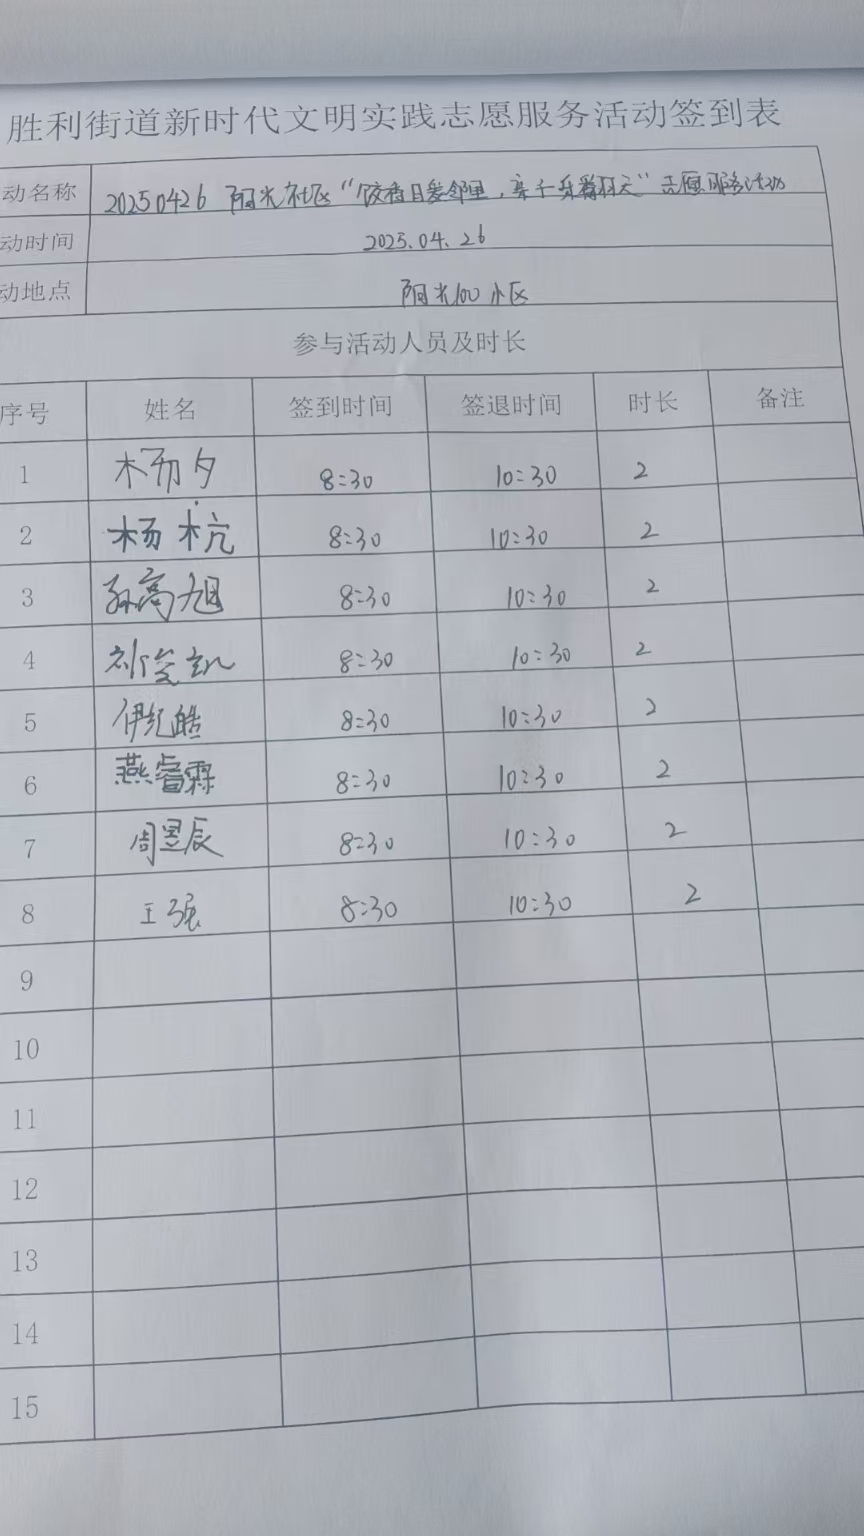 胜利街道新时代文明实践志愿服务活动签到表
动名称 20250426 阳光社区“饺香日爱邻里，亲子乐" 志愿服务活动
动时间 2025.04.26
动地点 阳光100小区
参与活动人员及时长
序号 姓名 签到时间 签退时间 时长 备注
1 8:30 10:30 2
2 杨杭 8:30 10:30 2
3 孙高旭 8:30 10:30 2
4 刘俊凯 8:30 10:30 2
5 伊纪皓 8:30 10:30 2
6 燕睿霖 8:30 10:30 2
7 周昱辰 8:30 10:30 2
8 王强 8:30 10:30 2
9
10
11
12
13
14
15